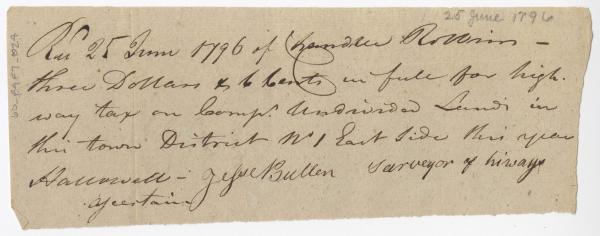 25 June 1796
Rec 25 June 1796 of Chandler Robbins -
three Dollars & 6 Cents in full for high-
way tax on Comps. Undivided Lands in
this town District No 1 East Side this year
Hallowell - Jesse Bullen Surveyor of hiways